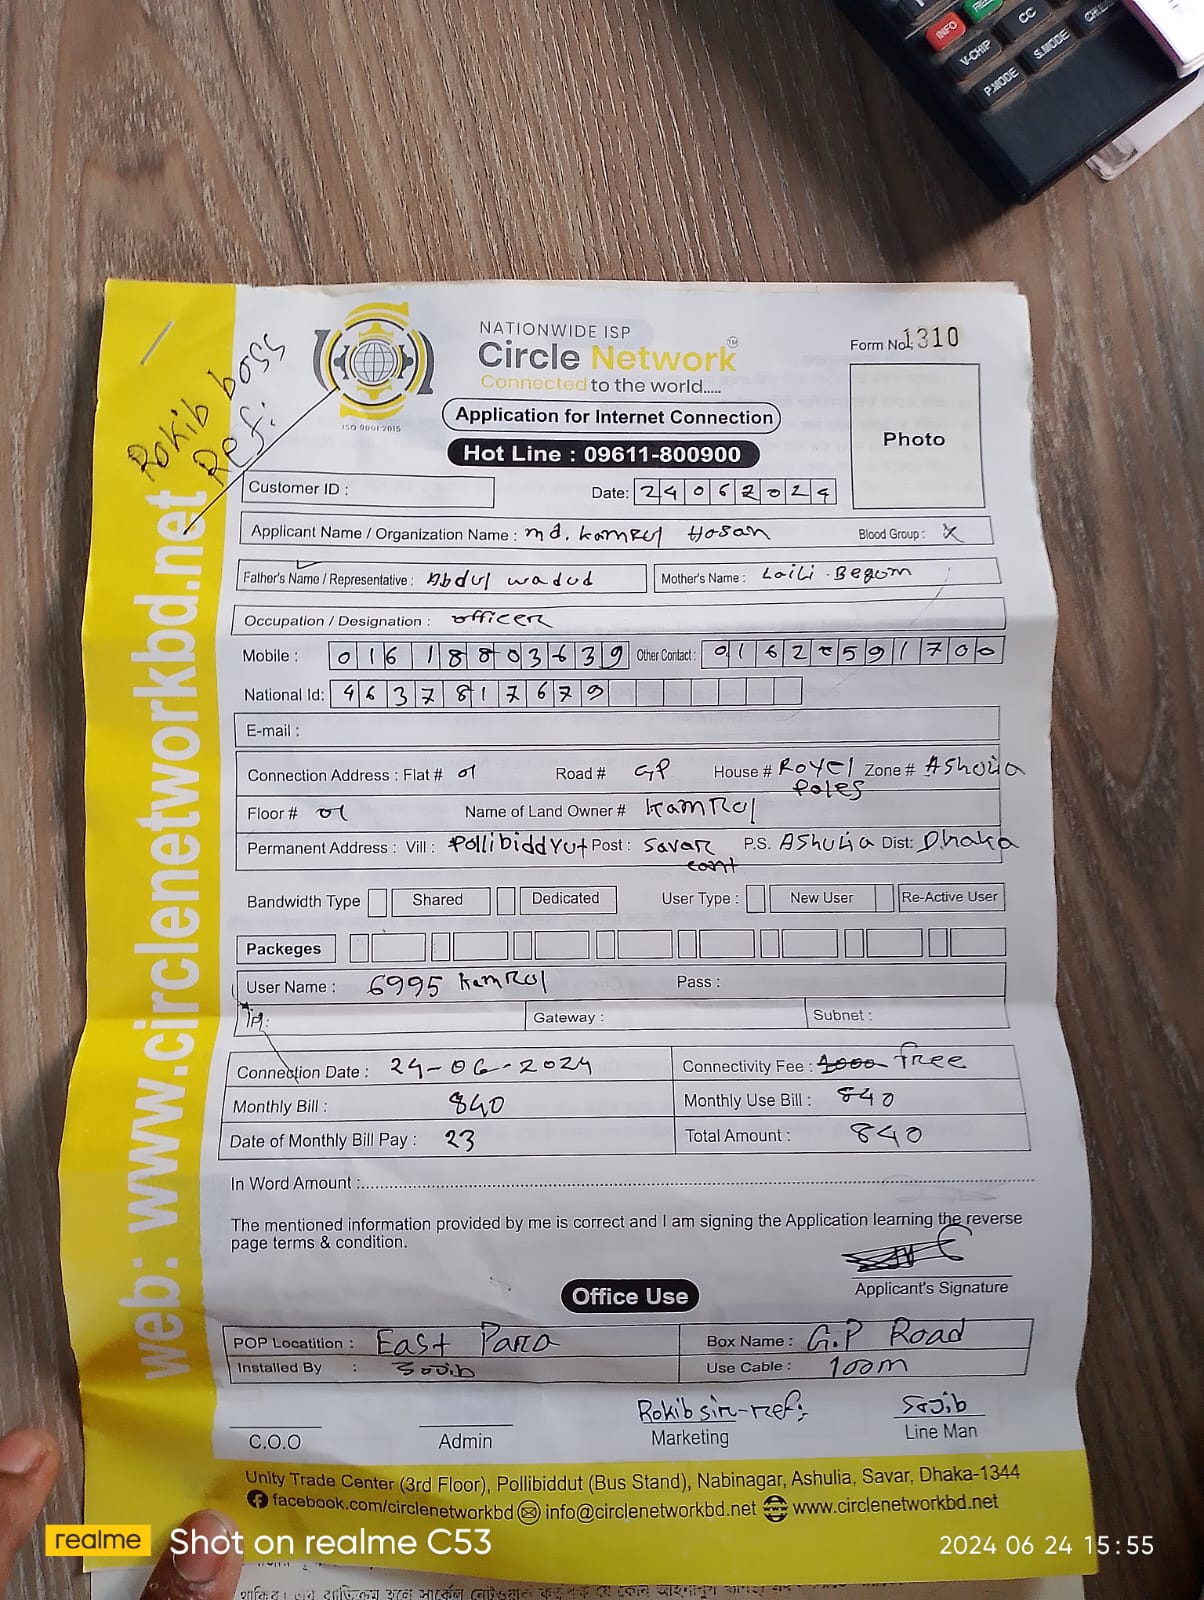 INFO
FREE
CC
V-CHIP
S.MODE
P.MODE
Rokib boss
Ref:
NATIONWIDE ISP
Circle Network TM
Connected to the world.....
ISO 9001:2015
Form No: 1310
Application for Internet Connection
Photo
Hot Line : 09611-800900
Customer ID :
Date: 24062024
Applicant Name / Organization Name : md. Kamrul Hosan Blood Group : X
Father's Name / Representative : Abdul wadud Mother's Name : Laili Begom
Occupation / Designation : officer
Mobile : 01618803639 Other Contact : 01620591700
National Id: 4637817679
E-mail :
Connection Address : Flat # 01 Road # GP House # Royel Zone # Ashulia
Poles
Floor # 01 Name of Land Owner # Kamrul
Permanent Address : Vill : Pollibiddyut Post : Savar P.S. Ashulia Dist: Dhaka
cant
Bandwidth Type Shared Dedicated User Type : New User Re-Active User
Packeges
User Name : 6995 Kamrul Pass :
IP: Gateway : Subnet :
Connection Date : 24-06-2024 Connectivity Fee : 1000 free
Monthly Bill : 840 Monthly Use Bill : 840
Date of Monthly Bill Pay : 23 Total Amount : 840
In Word Amount :
The mentioned information provided by me is correct and I am signing the Application learning the reverse
page terms & condition.
Applicant's Signature
Office Use
POP Locatition : East Para Box Name : G.P Road
Installed By : Sojib Use Cable : 100m
Rokib sir-ref: Sojib
C.O.O Admin Marketing Line Man
Unity Trade Center (3rd Floor), Pollibiddut (Bus Stand), Nabinagar, Ashulia, Savar, Dhaka-1344
facebook.com/circlenetworkbd info@circlenetworkbd.net www.circlenetworkbd.net
web: www.circlenetworkbd.net
realme Shot on realme C53 2024 06 24 15:55